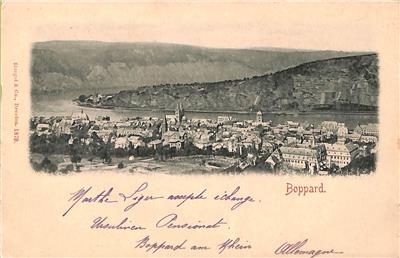 Stengel & Co., Dresden. 1879.
Boppard.
Marthe Léger accepte échange.
Ursulinen Pensionat.
Boppard am Rhein
Allemagne